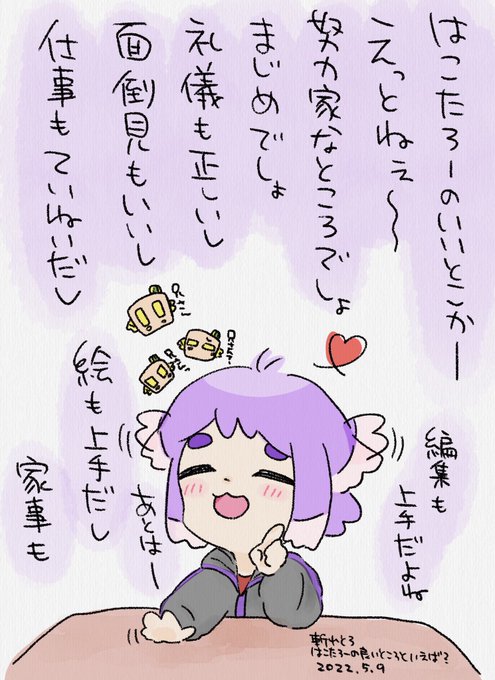 はこたろーのいいとこかー
えっとねぇ〜
努力家なところでしょ
まじめでしょ
礼儀も正しいし
面倒見もいいし
仕事もていねいだし
編集も
上手だよね
あとはー
絵も上手だし
家事も
斬れとろ
はこたろーの良いところといえば?
2022.5.9